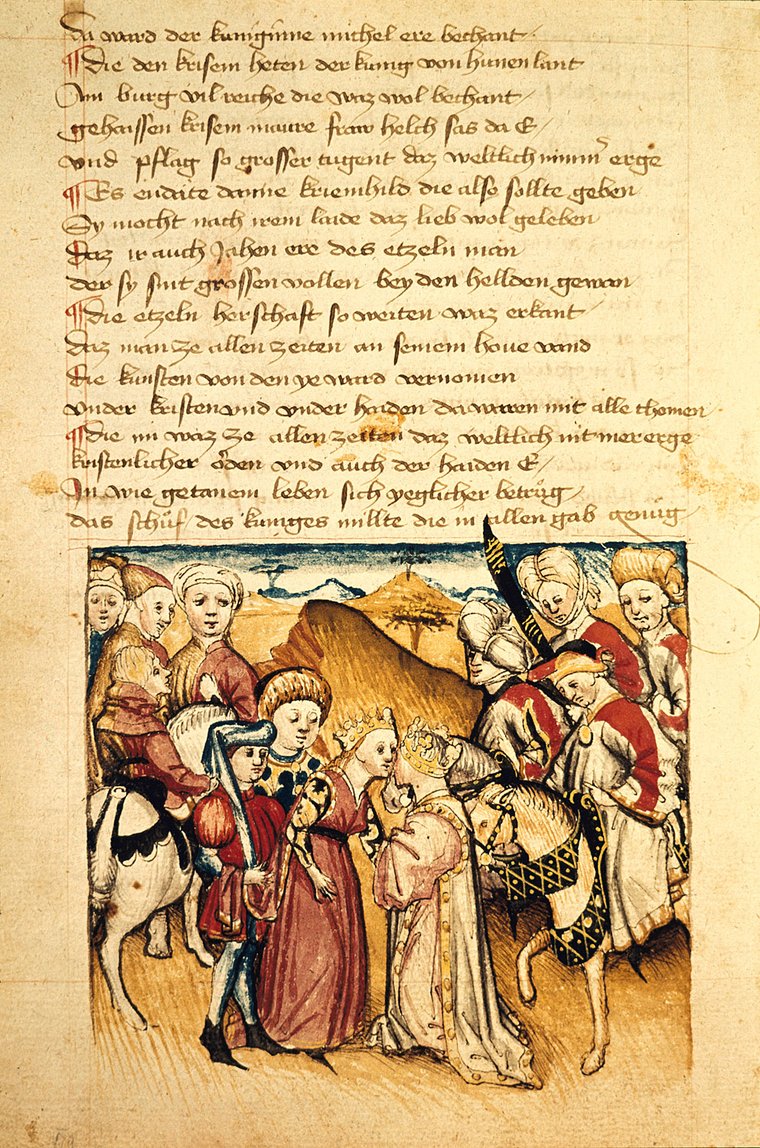 Da ward der kuniginne michel ere bechant
Die den krisem heten der kunig von hunen lant
Ain burg vil reiche die waz wol bechant
gehaissen krisem maure fraw helch sas da E
vnd pflag so grosser tugent daz weltlich nimmer erge
Es endaite danne kriemhild die also sollte geben
Sy mocht nach irem laide daz lieb wol geleben
Daz ir auch Jahen ere des etzeln man
der sy sint grossen vollen bey den hellden gewan
Die etzeln herschaft so weiten waz erkant
Daz man ze allen zeiten an seinem houe vand
Die kunsten von den ye ward vernomen
vnder kristen vnd vnder haiden da waren mit alle chomen
Die im waz ze allen zeiten daz weltlich nit mer erge
kristenlicher orden vnd auch der haiden E
In wie getanem leben sich yeglicher betrůg
das schůf des kuniges millte die in allen gab genůg